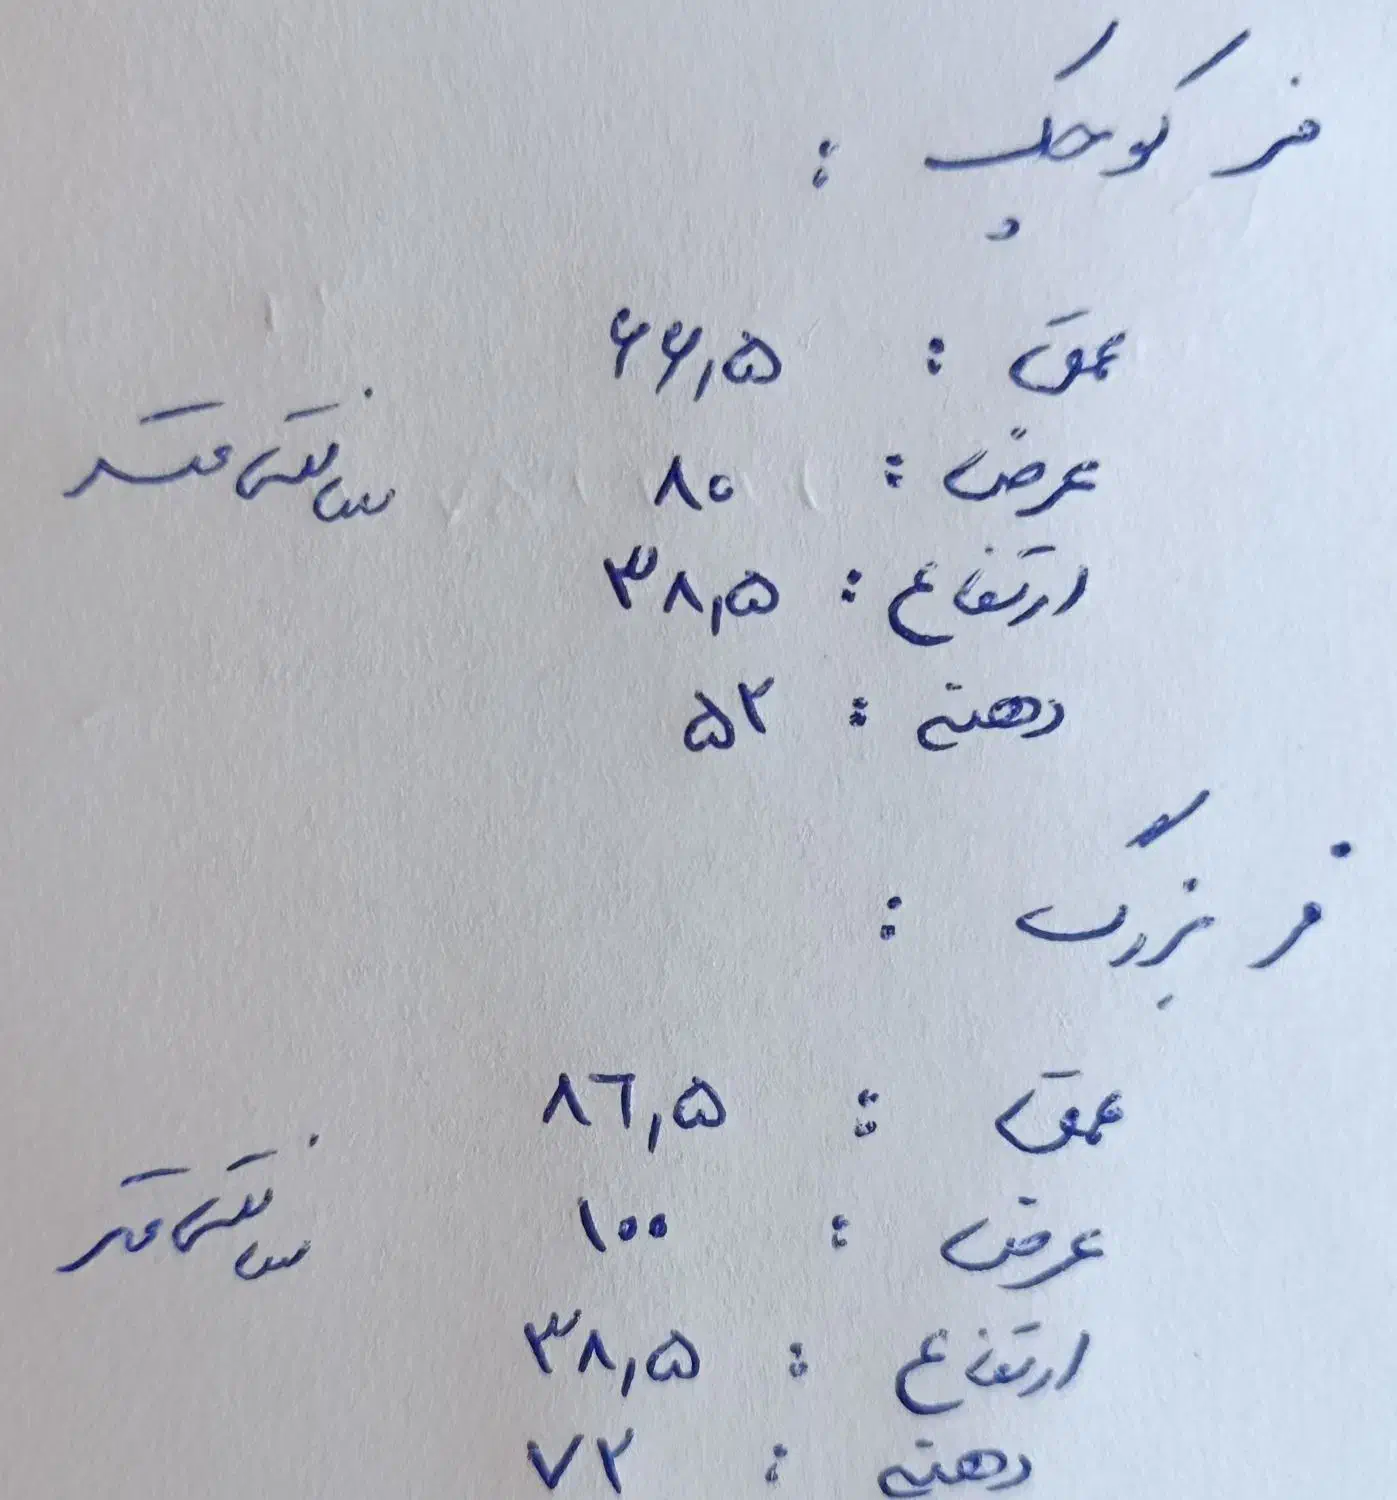 فر کوچک :
عمق : ۶۶,۵
عرض : ۸۰ سانتی متر
ارتفاع : ۳۸,۵
دهنه : ۵۲
فر بزرگ :
عمق : ۸۶,۵
عرض : ۱۰۰ سانتی متر
ارتفاع : ۳۸,۵
دهنه : ۷۲